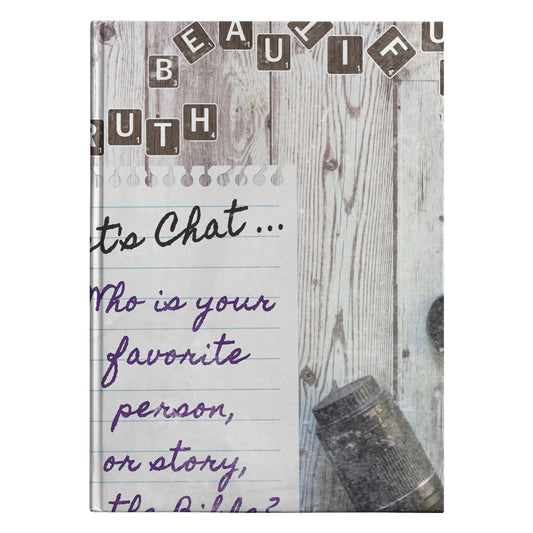 BEAUTIFU
RUTH
t's Chat...
Who is your
favorite
person,
or story,
the Bible?